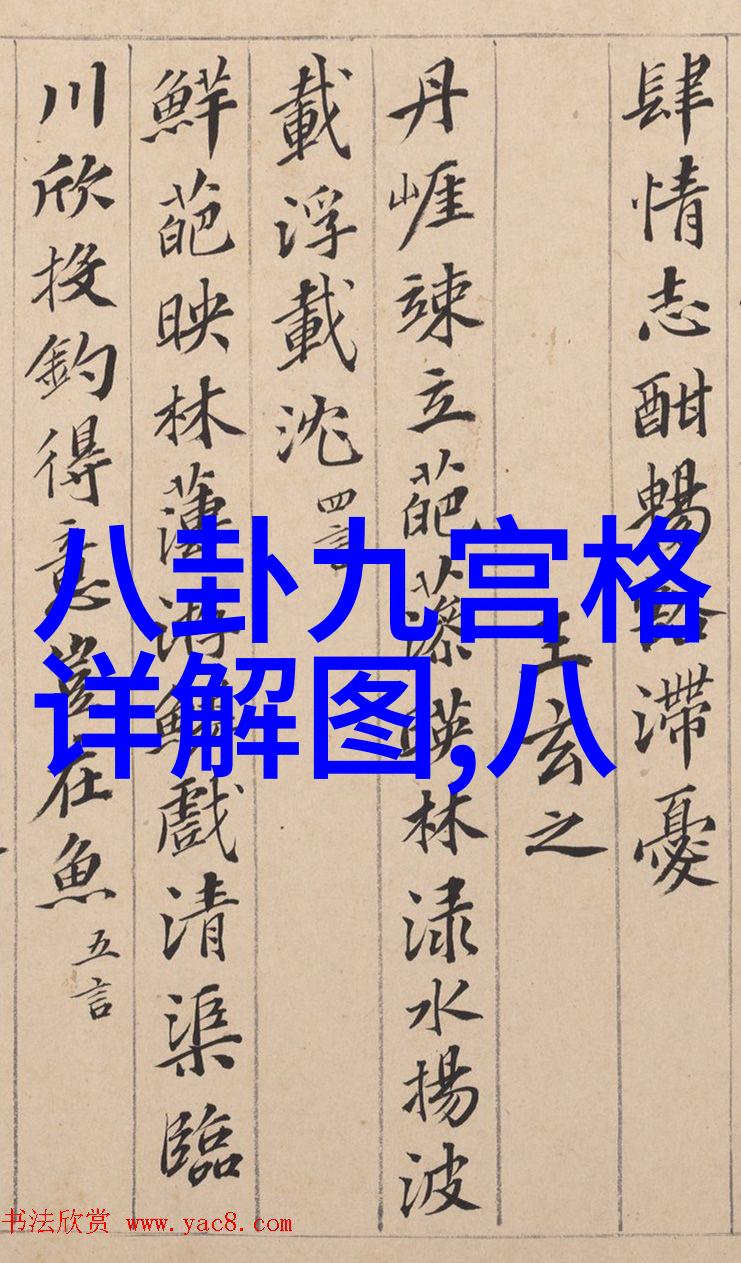 肆情志酣暢豁滯憂
王玄之
丹崕竦立葩藻暎林淥水揚波
載浮載沈 四言
鮮葩映林薄游鱗戲清渠臨
川欣投釣得意豈在魚 五言
八卦九宫格
详解图,八
书法欣赏 www.yac8.com